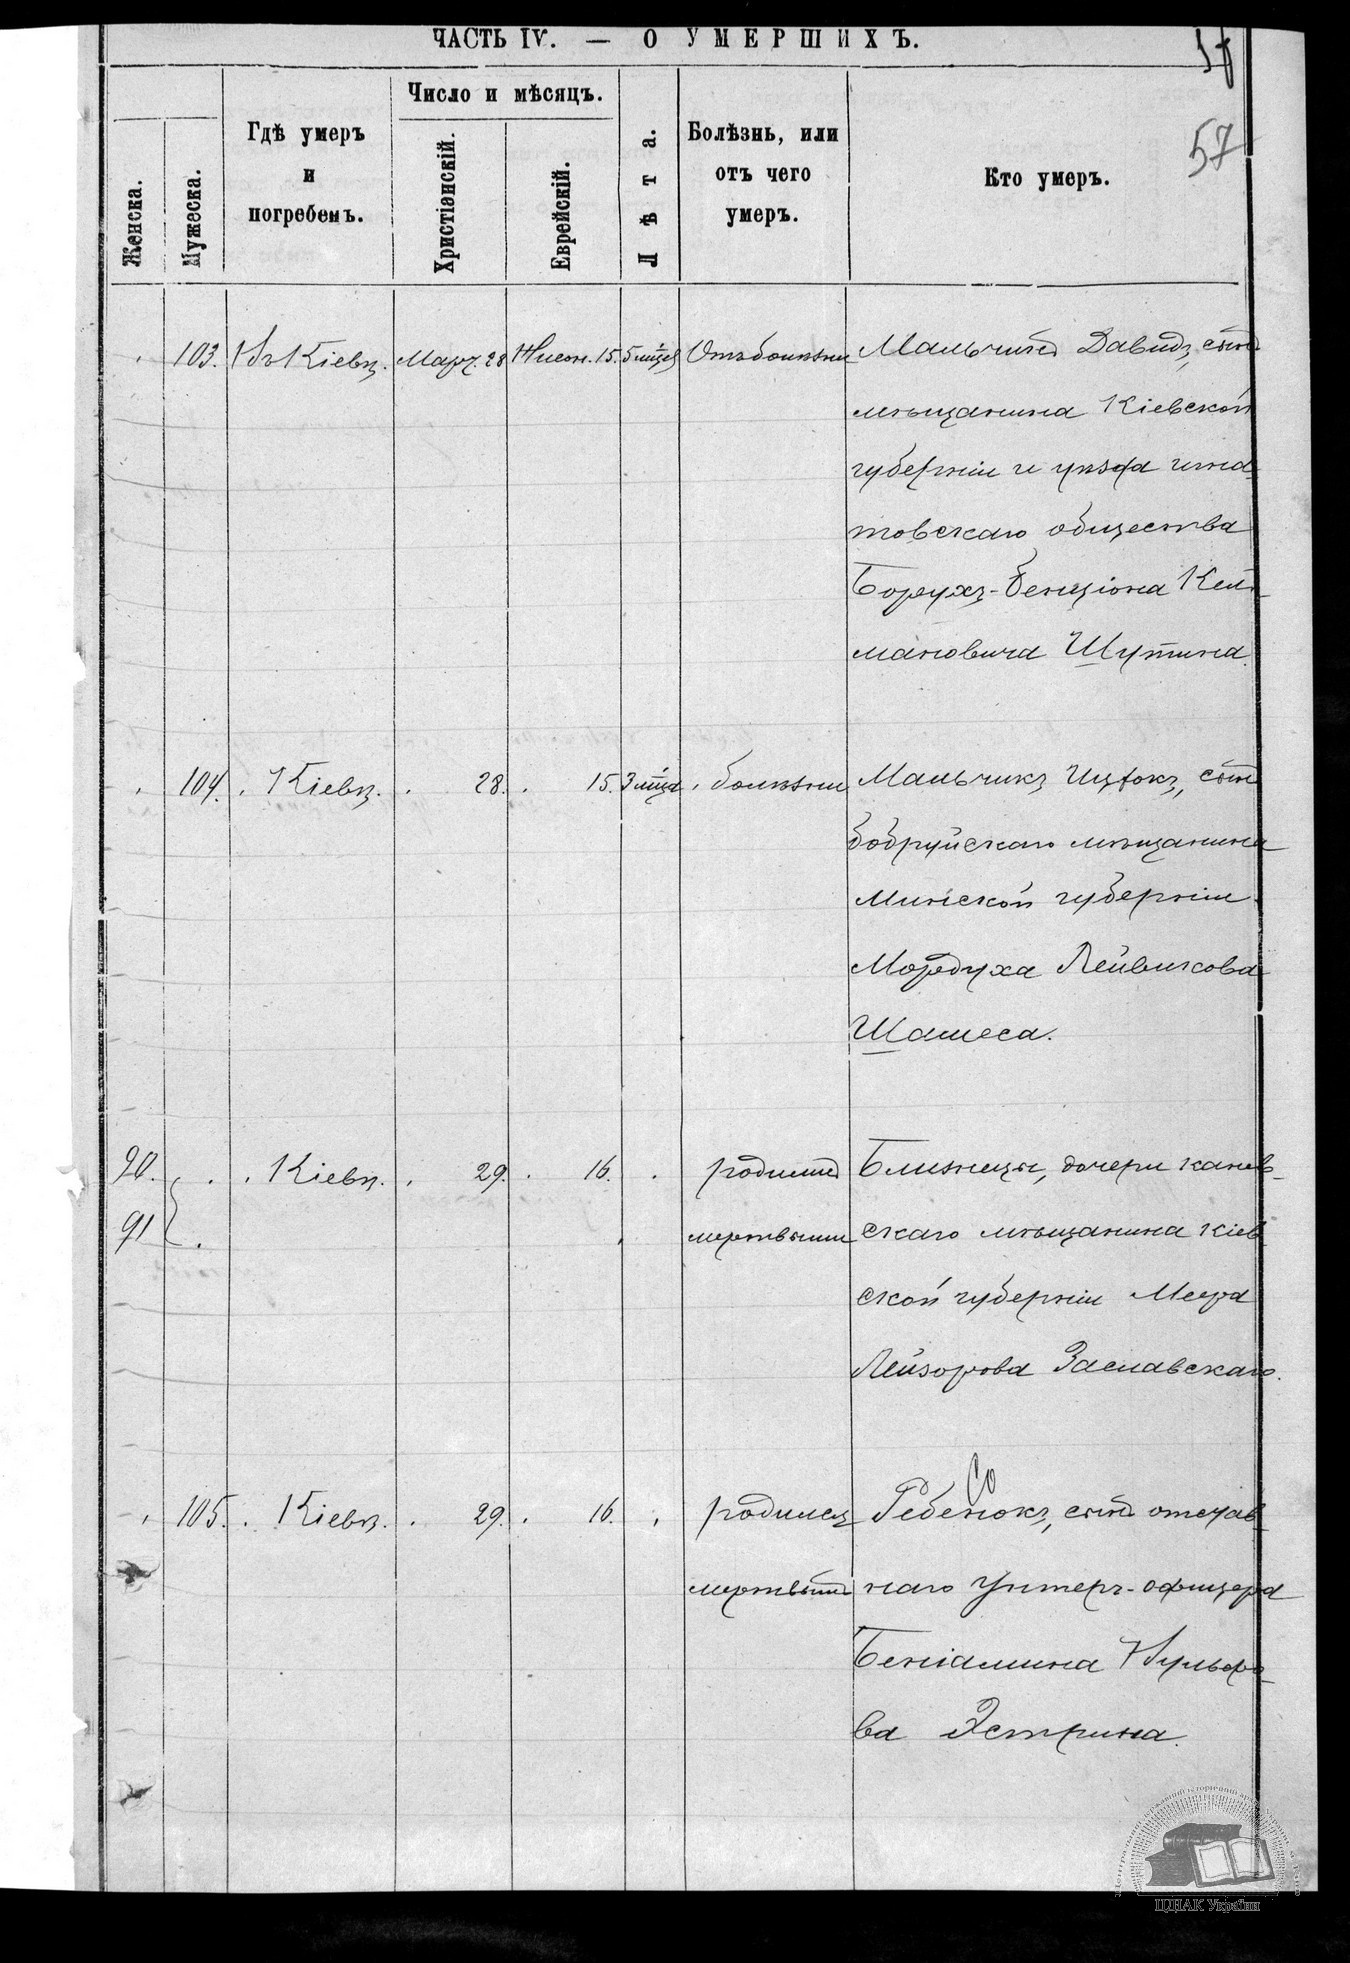 ЧАСТЬ IV. — О УМЕРШИХЪ.
57
Женска.
Мужеска.
Гдѣ умеръ
и
погребенъ.
Число и мѣсяцъ.
Христіанскій.
Еврейскій.
Лѣта.
Болѣзнь, или
отъ чего
умеръ.
Кто умеръ.
103. Въ Кіевѣ. Март. 28 Нисон. 15. 5 мѣся Отъ болѣзни Мальчикъ Давидъ, сынъ
мѣщанина Кіевской
губерніи и уѣзда игна
товскаго общества
Борухъ-Бенціона Кел
мановича Шутина.
104. Кіевѣ. 28. 15. 3 мѣся болѣзни Мальчикъ Ицхокъ, сынъ
бобруйскаго мѣщанина
Минской губерніи
Мордуха Лейвикова
Шамеса.
90. Кіевѣ. 29. 16. родились Близнецы, дочери канев-
91 мертвыми скаго мѣщанина Кіев
ской губерніи Меера
Лейзорова Заславскаго.
105. Кіевѣ. 29. 16. родился Ребенокъ, сынъ отстав-
мертвымъ наго Унтеръ-офицера
Беніамина Вульфо-
ва Эстрина.
ЦДІАК України